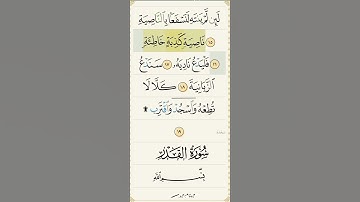 لَئِن لَّمۡ يَنتَهِ لَنَسۡفَعَۢا بِٱلنَّاصِيَةِ
١٥ نَاصِيَةٖ كَٰذِبَةٍ خَاطِئَةٖ
١٦ فَلۡيَدۡعُ نَادِيَهُۥ ١٧ سَنَدۡعُ
ٱلزَّبَانِيَةَ ١٨ كَلَّا لَا
تُطِعۡهُ وَٱسۡجُدۡۤ وَٱقۡتَرِب ۩
١٩
سُورَةُ القَدۡرِ
بِسۡمِ ٱللَّهِ